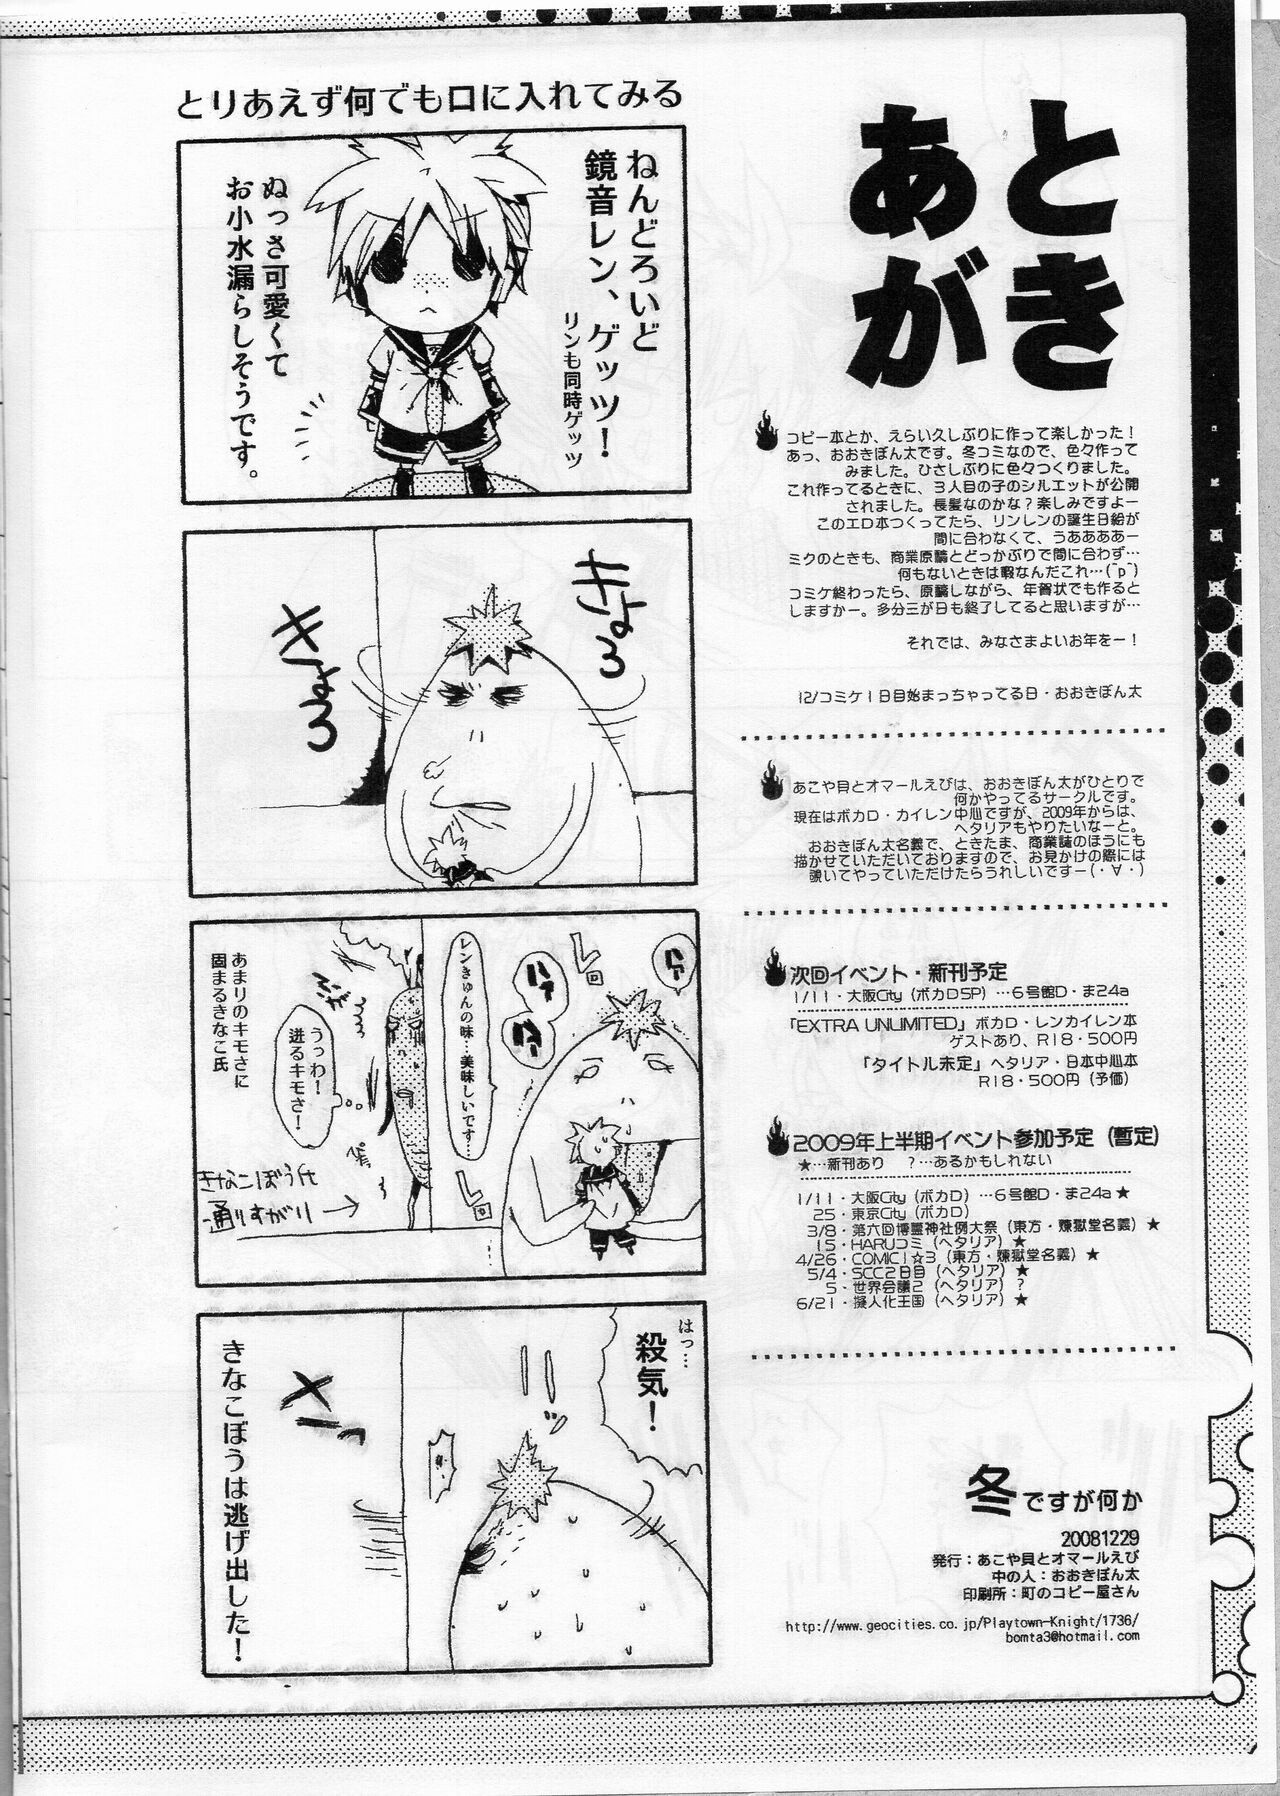 あとがき
コピー本とか、えらい久しぶりに作って楽しかった！
あっ、おおきぼん太です。冬コミなので、色々作って
みました。ひさしぶりに色々つくりました。
これ作ってるときに、3人目の子のシルエットが公開
されました。長髪なのかな？楽しみですよー
このエロ本つくってたら、リンレンの誕生日絵が
間に合わなくて、うああああー
ミクのときも、商業原稿とどっかぶりで間に合わず…
何もないときは暇なんだこれ…(^p^)
コミケ終わったら、原稿しながら、年賀状でも作ると
しますかー。多分三が日も終了してると思いますが…
それでは、みなさまよいお年をー！
12/コミケ1日目始まっちゃってる日・おおきぼん太
あこや貝とオマールえびは、おおきぼん太がひとりで
何かやってるサークルです。
現在はボカロ・カイレン中心ですが、2009年からは、
ヘタリアもやりたいなーと。
おおきぼん太名義で、ときたま、商業誌のほうにも
描かせていただいておりますので、お見かけの際には
覗いてやっていただけたらうれしいですー(・∀・)
次回イベント・新刊予定
1/11・大阪City（ボカロSP）…6号館D・ま24a
「EXTRA UNLIMITED」ボカロ・レンカイレン本
ゲストあり、R18・500円
「タイトル未定」ヘタリア・日本中心本
R18・500円（予価）
2009年上半期イベント参加予定（暫定）
★…新刊あり　？…あるかもしれない
1/11・大阪City（ボカロ）…6号館D・ま24a★
25・東京City（ボカロ）
3/8・第六回博麗神社例大祭（東方・煉獄堂名義）★
15・HARUコミ（ヘタリア）★
4/26・COMIC1☆3（東方・煉獄堂名義）★
5/4・SCC2日目（ヘタリア）★
5・世界会議2（ヘタリア）？
6/21・擬人化王国（ヘタリア）★
冬ですが何か
20081229
発行：あこや貝とオマールえび
中の人：おおきぼん太
印刷所：町のコピー屋さん
http://www.geocities.co.jp/Playtown-Knight/1736/
bomta3@hotmail.com
とりあえず何でも口に入れてみる
ねんどろいど
鏡音レン、ゲッツ！
リンも同時ゲッツ
ぬっさ可愛くて
お小水漏らしそうです。
きょろ
きょろ
ハァ
レロ
ハァ
ハァ
レンきゅんの味…美味しいです…
レロ
うっわ！
迸るキモさ！
あまりのキモさに
固まるきなこ氏
きなこぼう氏
通りすがり
はっ…
殺気！
きなこぼうは逃げ出した！